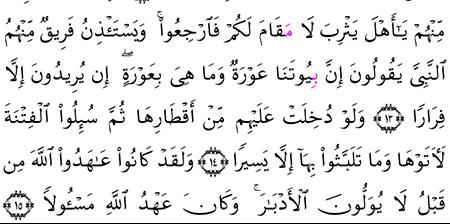 مِّنْهُمْ يَٰٓأَهْلَ يَثْرِبَ لَا مَقَامَ لَكُمْ فَٱرْجِعُوا۟ۚ وَيَسْتَـْٔذِنُ فَرِيقٌ مِّنْهُمُ
ٱلنَّبِيَّ يَقُولُونَ إِنَّ بِيُوتَنَا عَوْرَةٌ وَمَا هِيَ بِعَوْرَةٍۖ إِن يُرِيدُونَ إِلَّا
فِرَارًا ﴿١٣﴾ وَلَوْ دُخِلَتْ عَلَيْهِم مِّنْ أَقْطَارِهَا ثُمَّ سُئِلُوا۟ ٱلْفِتْنَةَ
لَأَتَوْهَا وَمَا تَلَبَّثُوا۟ بِهَآ إِلَّا يَسِيرًا ﴿١٤﴾ وَلَقَدْ كَانُوا۟ عَٰهَدُوا۟ ٱللَّهَ مِن
قَبْلُ لَا يُوَلُّونَ ٱلْأَدْبَٰرَۚ وَكَانَ عَهْدُ ٱللَّهِ مَسْـُٔولًا ﴿١٥﴾